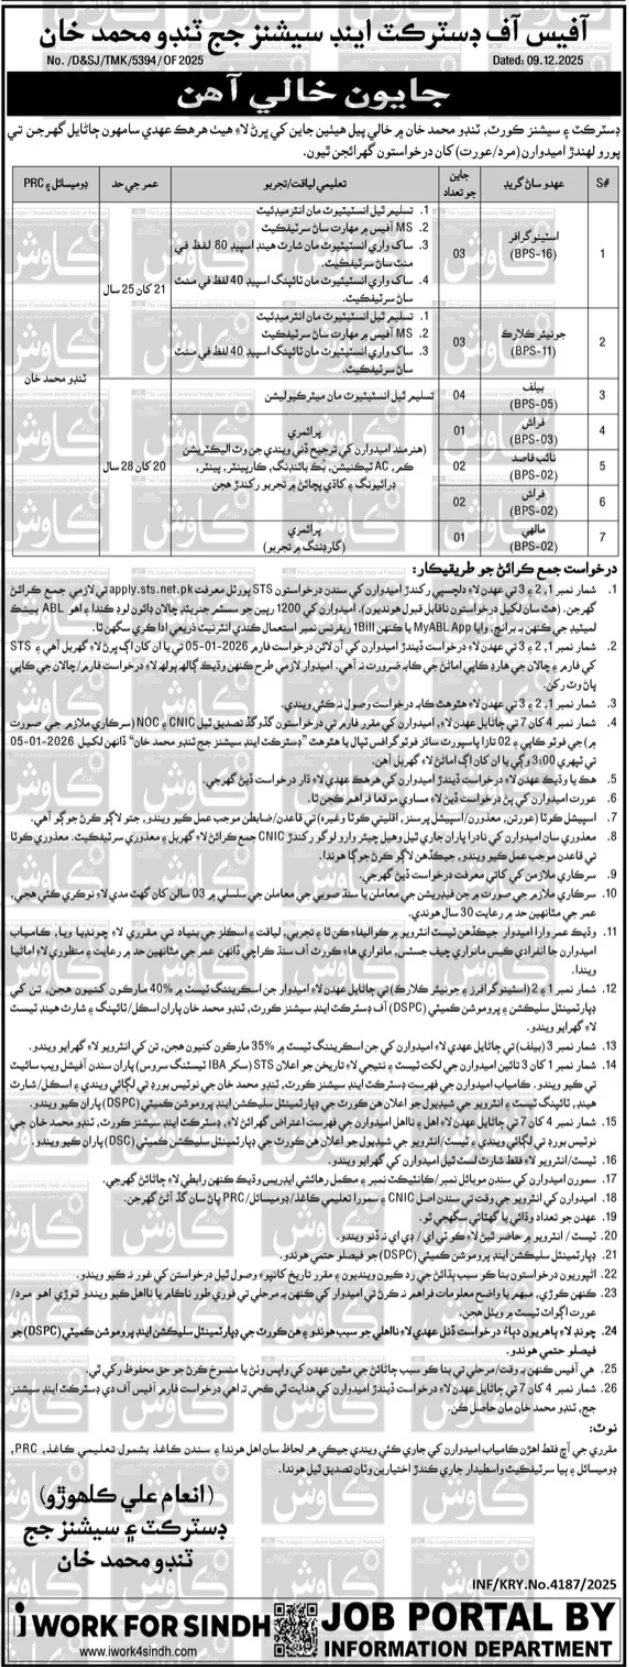 آفيس آف ڊسٽرڪٽ اينڊ سيشنز جج ٽنڊو محمد خان
No. /D&SJ/TMK/5394/OF 2025
Dated: 09.12.2025
جايون خالي آهن
ڊسٽرڪٽ ۽ سيشنز ڪورٽ، ٽنڊو محمد خان ۾ خالي پيل هيٺين جاين کي ڀرڻ لاءِ هيٺ هرهڪ عهدي سامهون ڄاڻايل گهرجن تي
پورو لهندڙ اميدوارن (مرد/عورت) کان درخواستون گهرائجن ٿيون.
S#
عهدو ساڻ گريڊ
جاين جو تعداد
تعليمي لياقت/تجربو
عمر جي حد
ڊوميسائل ۽ PRC
1
اسٽينوگرافر
(BPS-16)
03
1. تسليم ٿيل انسٽيٽيوٽ مان انٽرميڊيٽ
2. MS آفيس ۾ مهارت ساڻ سرٽيفڪيٽ
3. ساک واري انسٽيٽيوٽ مان شارٽ هينڊ اسپيڊ 80 لفظ في
منٽ ساڻ سرٽيفڪيٽ.
4. ساک واري انسٽيٽيوٽ مان ٽائپنگ اسپيڊ 40 لفظ في منٽ
ساڻ سرٽيفڪيٽ.
21 کان 25 سال
ٽنڊو محمد خان
2
جونيئر ڪلارڪ
(BPS-11)
03
1. تسليم ٿيل انسٽيٽيوٽ مان انٽرميڊيٽ
2. MS آفيس ۾ مهارت ساڻ سرٽيفڪيٽ
3. ساک واري انسٽيٽيوٽ مان ٽائپنگ اسپيڊ 40 لفظ في منٽ
ساڻ سرٽيفڪيٽ.
3
بيلف
(BPS-05)
04
تسليم ٿيل انسٽيٽيوٽ مان ميٽرڪيوليشن
20 کان 28 سال
4
فراش
(BPS-03)
01
پرائمري
(هنرمند اميدوارن کي ترجيح ڏني ويندي جن وٽ اليڪٽريشن
ڪم، AC ٽيڪنيشن، بُڪ بائنڊنگ، ڪارپينٽر، پينٽر،
ڊرائيونگ ۽ کاڌي پچائڻ ۾ تجربو رکندڙ هجن
5
نائب قاصد
(BPS-02)
02
6
فراش
(BPS-02)
02
7
مالهي
(BPS-02)
01
پرائمري
(گارڊننگ ۾ تجربو)
درخواست جمع ڪرائڻ جو طريقيڪار:
1. شمار نمبر 1، 2 ۽ 3 تي عهدن لاءِ دلچسپي رکندڙ اميدوارن کي سندن درخواستون STS پورٽل معرفت apply.sts.net.pk تي لازمي جمع ڪرائڻ
گهرجن. (هٿ سان لکيل درخواستون ناقابل قبول هونديون). اميدوارن کي 1200 رپين جو سسٽم جنريٽڊ چالان ڊائون لوڊ ڪندا ۽ اهو ABL بينڪ
لميٽيڊ جي ڪنهن به برانچ، وايا MyABL App يا ڪنهن 1Bill ريفرنس نمبر استعمال ڪندي انٽرنيٽ ذريعي ادا ڪري سگهن ٿا.
2. شمار نمبر 1، 2 ۽ 3 تي عهدن لاءِ درخواست ڏيندڙ اميدوارن کي آن لائن درخواست فارم 2026-01-05 تي يا ان کان اڳ ڀرڻ لاءِ گهربل آهي ۽ STS
کي فارم ۽ چالان جي هارڊ ڪاپي اماڻڻ جي ڪابه ضرورت نه آهي. اميدوار لازمي طرح ڪنهن وڌيڪ ڳالهه ٻولهه لاءِ درخواست فارم/چالان جي ڪاپي
پاڻ وٽ رکن.
3. شمار نمبر 1، 2 ۽ 3 تي عهدن لاءِ هٿوهٿ ڪابه درخواست وصول نه ڪئي ويندي.
4. شمار نمبر 4 کان 7 تي ڄاڻايل عهدن لاءِ، اميدوارن کي مقرر فارم تي درخواستون گڏوگڏ تصديق ٿيل CNIC ۽ NOC (سرڪاري ملازم جي صورت
۾) جي فوٽو ڪاپي ۽ 02 تازا پاسپورٽ سائز فوٽوگرافس ٽپال يا هٿوهٿ "ڊسٽرڪٽ اينڊ سيشنز جج ٽنڊو محمد خان" ڏانهن لکيل 2026-01-05
تي ٽيپهري 3:00 وڳي يا ان کان اڳ اماڻڻ لاءِ گهربل آهن.
5. هڪ يا وڌيڪ عهدن لاءِ درخواست ڏيندڙ اميدوارن کي هرهڪ عهدي لاءِ ڌار درخواست ڏيڻ گهرجي.
6. عورت اميدوارن کي پڻ درخواست ڏيڻ لاءِ مساوي موقعا فراهم ڪجن ٿا.
7. اسپيشل ڪوٽا (عورتن، معذورن/اسپيشل پرسنز، اقليتي ڪوٽا وغيره) تي قاعدن/ضابطن موجب عمل ڪيو ويندو، جتو لاڳو ڪرڻ جوڳو آهي.
8. معذوري سان اميدوارن کي نادرا پاران جاري ٿيل وهيل چيئر وارو لوگو رکندڙ CNIC جمع ڪرائڻ لاءِ گهربل ۽ معذوري سرٽيفڪيٽ. معذوري ڪوٽا
تي قاعدن موجب عمل ڪيو ويندو، جيڪڏهن لاڳو ڪرڻ جوڳا هوندا.
9. سرڪاري ملازمن کي کاتي معرفت درخواست ڏيڻ گهرجي.
10. سرڪاري ملازم جي صورت ۾ جن فيڊريشن جي معاملن يا سنڌ صوبي جي معاملن جي سلسلي ۾ 03 سالن کان گهٽ مدي لاءِ نوڪري ڪئي هجي،
عمر جي مٿانهين حد ۾ رعايت 30 سال هوندي.
11. وڌيڪ عمر وارا اميدوار جيڪڏهن ٽيسٽ انٽرويو ۾ ڪواليفاءِ ڪن ٿا ۽ تجربي، لياقت ۽ اسڪلز جي بنياد تي مقرري لاءِ چونڊيا ويا، ڪامياب
اميدوارن جا انفرادي ڪيس مانواري چيف جسٽس، مانواري هاءِ ڪورٽ آف سنڌ ڪراچي ڏانهن عمر جي مٿانهين حد ۾ رعايت ۽ منظوري لاءِ اماڻيا
ويندا.
12. شمار نمبر 1 ۽ 2 (اسٽينوگرافرز ۽ جونيئر ڪلارڪ) تي ڄاڻايل عهدن لاءِ اميدوار جن اسڪريننگ ٽيسٽ ۾ 40% مارڪون کنيون هجن، تن کي
ڊپارٽمينٽل سليڪشن ۽ پروموشن ڪميٽي (DSPC) آف ڊسٽرڪٽ اينڊ سيشنز ڪورٽ، ٽنڊو محمد خان پاران اسڪل/ٽائپنگ ۽ شارٽ هينڊ ٽيسٽ
لاءِ گهرايو ويندو.
13. شمار نمبر 3 (بيلف) تي ڄاڻايل عهدي لاءِ اميدوارن کي جن اسڪريننگ ٽيسٽ ۾ 35% مارڪون کنيون هجن، تن کي انٽرويو لاءِ گهرايو ويندو.
14. شمار نمبر 1 کان 3 تائين اميدوارن جي لکت ٽيسٽ ۽ نتيجي لاءِ تاريخن جو اعلان STS (سکر IBA ٽيسٽنگ سروس) پاران سندن آفيشل ويب سائيٽ
تي ڪيو ويندو. ڪامياب اميدوارن جي فهرست ڊسٽرڪٽ اينڊ سيشنز ڪورٽ، ٽنڊو محمد خان جي نوٽيس بورڊ تي لڳائي ويندي ۽ اسڪل/شارٽ
هينڊ، ٽائپنگ ٽيسٽ ۽ انٽرويو جي شيڊيول جو اعلان هن ڪورٽ جي ڊپارٽمينٽل سليڪشن اينڊ پروموشن ڪميٽي (DSPC) پاران ڪيو ويندو.
15. شمار نمبر 4 کان 7 تي ڄاڻايل عهدن لاءِ اهل ۽ نااهل اميدوارن جي فهرست اعتراض گهرائڻ لاءِ، ڊسٽرڪٽ اينڊ سيشنز ڪورٽ، ٽنڊو محمد خان جي
نوٽيس بورڊ تي لڳائي ويندي ۽ ٽيسٽ/انٽرويو جي شيڊيول جو اعلان هن ڪورٽ جي ڊپارٽمينٽل سليڪشن ڪميٽي (DSC) پاران ڪيو ويندو.
16. ٽيسٽ/انٽرويو لاءِ فقط شارٽ لسٽ ٿيل اميدوارن کي گهرايو ويندو.
17. سمورن اميدوارن کي سندن موبائيل نمبر/ڪانٽيڪٽ نمبر ۽ مڪمل رهائشي ايڊريس وڌيڪ ڪنهن رابطي لاءِ ڄاڻائڻ گهرجي.
18. اميدوارن کي انٽرويو جي وقت تي سندن اصل CNIC ۽ سمورا تعليمي ڪاغذ/ڊوميسائل/PRC پاڻ سان گڏ آڻڻ گهرجن.
19. عهدن جو تعداد وڌائي يا گهٽائي سگهجي ٿو.
20. ٽيسٽ / انٽرويو ۾ حاضر ٿيڻ لاءِ ڪو ٽي اي / ڊي اي نه ڏنو ويندو.
21. ڊپارٽمينٽل سليڪشن اينڊ پروموشن ڪميٽي (DSPC) جو فيصلو حتمي هوندو.
22. اڻپوريون درخواستون بنا ڪو سبب ٻڌائڻ جي رد ڪيون وينديون ۽ مقرر تاريخ کانپوءِ وصول ٿيل درخواستن کي غور نه ڪيو ويندو.
23. ڪنهن ڪوڙي، مبهم يا واضح معلومات فراهم نه ڪرڻ تي اميدوار کي ڪنهن به مرحلي تي فوري طور ناڪام يا نااهل ڪيو ويندو توڙي اهو مرد/
عورت اڳواٽ ٽيسٽ ۾ ويٺل هجن.
24. چونڊ لاءِ ٻاهريون دٻاءُ درخواست ڏئل عهدي لاءِ نااهلي جو سبب هوندو ۽ هن ڪورٽ جي ڊپارٽمينٽل سليڪشن اينڊ پروموشن ڪميٽي (DSPC) جو
فيصلو حتمي هوندو.
25. هي آفيس ڪنهن به وقت/مرحلي تي بنا ڪو سبب ڄاڻائڻ جي مٿين عهدن کي واپس وٺڻ يا منسوخ ڪرڻ جو حق محفوظ رکي ٿي.
26. شمار نمبر 4 کان 7 تي ڄاڻايل عهدن لاءِ درخواست ڏيندڙ اميدوارن کي هدايت ٿي ڪجي ته اهي درخواست فارم آفيس آف دي ڊسٽرڪٽ اينڊ سيشنز
جج، ٽنڊو محمد خان مان حاصل ڪن.
نوٽ:
مقرري جي آڇ فقط اهڙن ڪامياب اميدوارن کي جاري ڪئي ويندي جيڪي هر لحاظ سان اهل هوندا ۽ سندن ڪاغذ بشمول تعليمي ڪاغذ، PRC،
ڊوميسائل ۽ ٻيا سرٽيفڪيٽ واسطيدار جاري ڪندڙ اختيارين وٽان تصديق ٿيل هوندا.
(انعام علي ڪلهوڙو)
ڊسٽرڪٽ ۽ سيشنز جج
ٽنڊو محمد خان
INF/KRY.No.4187/2025
i WORK FOR SINDH
www.iwork4sindh.com
JOB PORTAL BY
INFORMATION DEPARTMENT